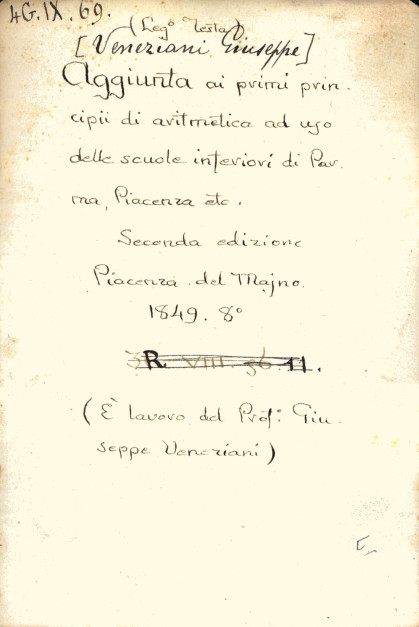 4G.IX.69.
(Leg.º Testa)
[Veneziani Giuseppe]
Aggiunta ai primi prin-
cipii di aritmetica ad uso
delle scuole inferiori di Par-
ma, Piacenza etc.
Seconda edizione
Piacenza. del Majno.
1849. 8º
R. VIII. 36. 11.
(È lavoro del Prof.: Giu-
seppe Veneziani)